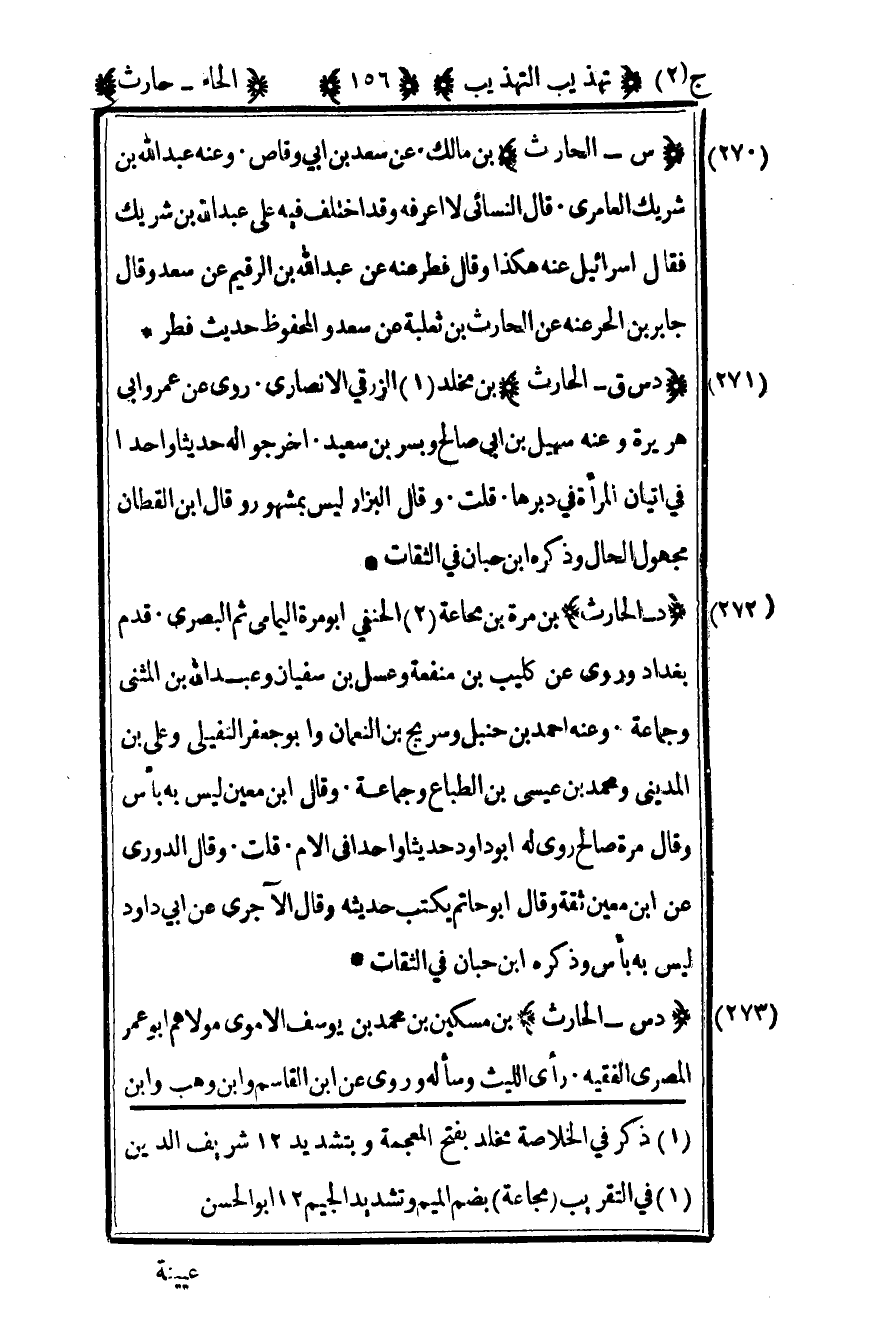 ج(٢) ﴿ تهذيب التهذيب ﴾ ﴿ ١٥٦ ﴾ ﴿ الحاء ـ حارث ﴾
(٢٧٠) ﴿ س ـ الحارث ﴾ بن مالك ٠ عن سعد بن ابي وقاص ٠ وعنه عبدالله بن
شريك العامرى ٠ قال النسائى لا اعرفه وقد اختلف فيه على عبدالله بن شريك
فقال اسرائيل عنه هكذا وقال فطر عنه عن عبدالله بن الرقيم عن سعد وقال
جابر بن الحر عنه عن الحارث بن ثعلبة عن سعد و المحفوظ حديث فطر *
(٢٧١) ﴿ دس ق ـ الحارث ﴾ بن مخلد (١) الزرقي الانصارى ٠ روى عن عمر وابي
هريرة و عنه سهيل بن ابي صالح و بسر بن سعيد ٠ اخرجوا له حديثا واحدا
في اتيان المرأة في دبرها ٠ قلت ٠ و قال البزار ليس بمشهور و قال ابن القطان
مجهول الحال و ذكره ابن حبان في الثقات *
(٢٧٢) ﴿ د ـ الحارث ﴾ بن مرة بن مجاعة (٢) الحنفي ابو مرة اليمامى ثم البصرى ٠ قدم
بغداد وروى عن كليب بن منفعة وعسل بن سفيان وعبدالله بن المثنى
وجماعة ٠ وعنه احمد بن حنبل وسريج بن النعمان وابو جعفر النفيلى وعلى بن
المدينى ومحمد بن عيسى بن الطباع وجماعة ٠ وقال ابن معين ليس به بأس
وقال مرة صالح روى له ابو داود حديثا واحدا فى الام ٠ قلت ٠ وقال الدورى
عن ابن معين ثقة وقال ابو حاتم يكتب حديثه وقال الآجرى عن ابي داود
ليس به بأس وذكره ابن حبان في الثقات *
(٢٧٣) ﴿ دس ـ الحارث ﴾ بن مسكين بن محمد بن يوسف الاموى مولاهم ابو عمر
المصرى الفقيه ٠ رأى الليث وسأله وروى عن ابن القاسم وابن وهب وابن
(١) ذكر في الخلاصة مخلد بفتح المعجمة و بتشديد ١٢ شريف الدين
(١) في التقريب (مجاعة) بضم الميم وتشديد الجيم ١٢ ابوالحسن
عيينة